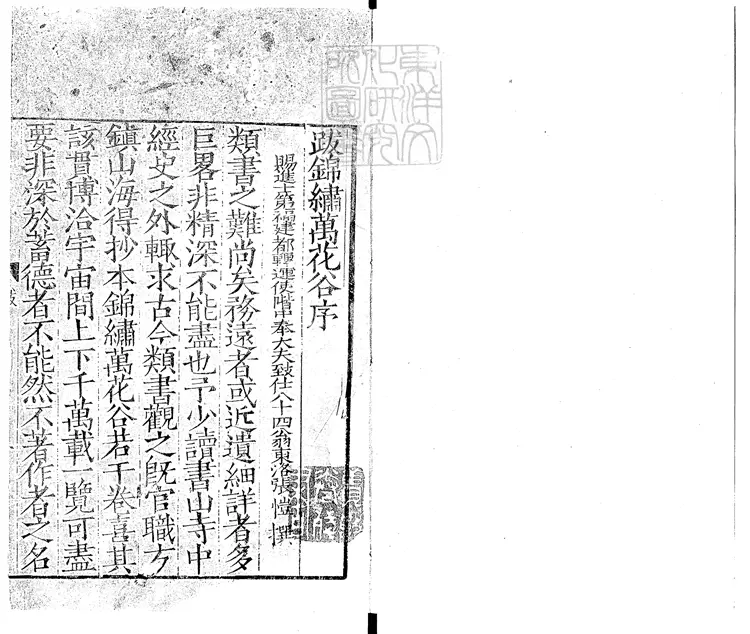 跋錦繡萬花谷序
賜進士第福建都轉運使階中奉大夫致仕八十四翁東洛張愷撰
類書之難尚矣務遠者或近遺細詳者多
巨畧非精深不能盡也予少讀書山寺中
經史之外輙求古今類書觀之旣官職方
鎮山海得抄本錦繡萬花谷若干卷喜其
該貫博洽宇宙間上下千萬載一覽可盡
要非深於蓄德者不能然不著作者之名
東洋文
化研究
所圖